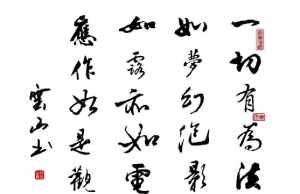 一切有為法
如夢幻泡影
如露亦如電
應作如是觀
雲山书